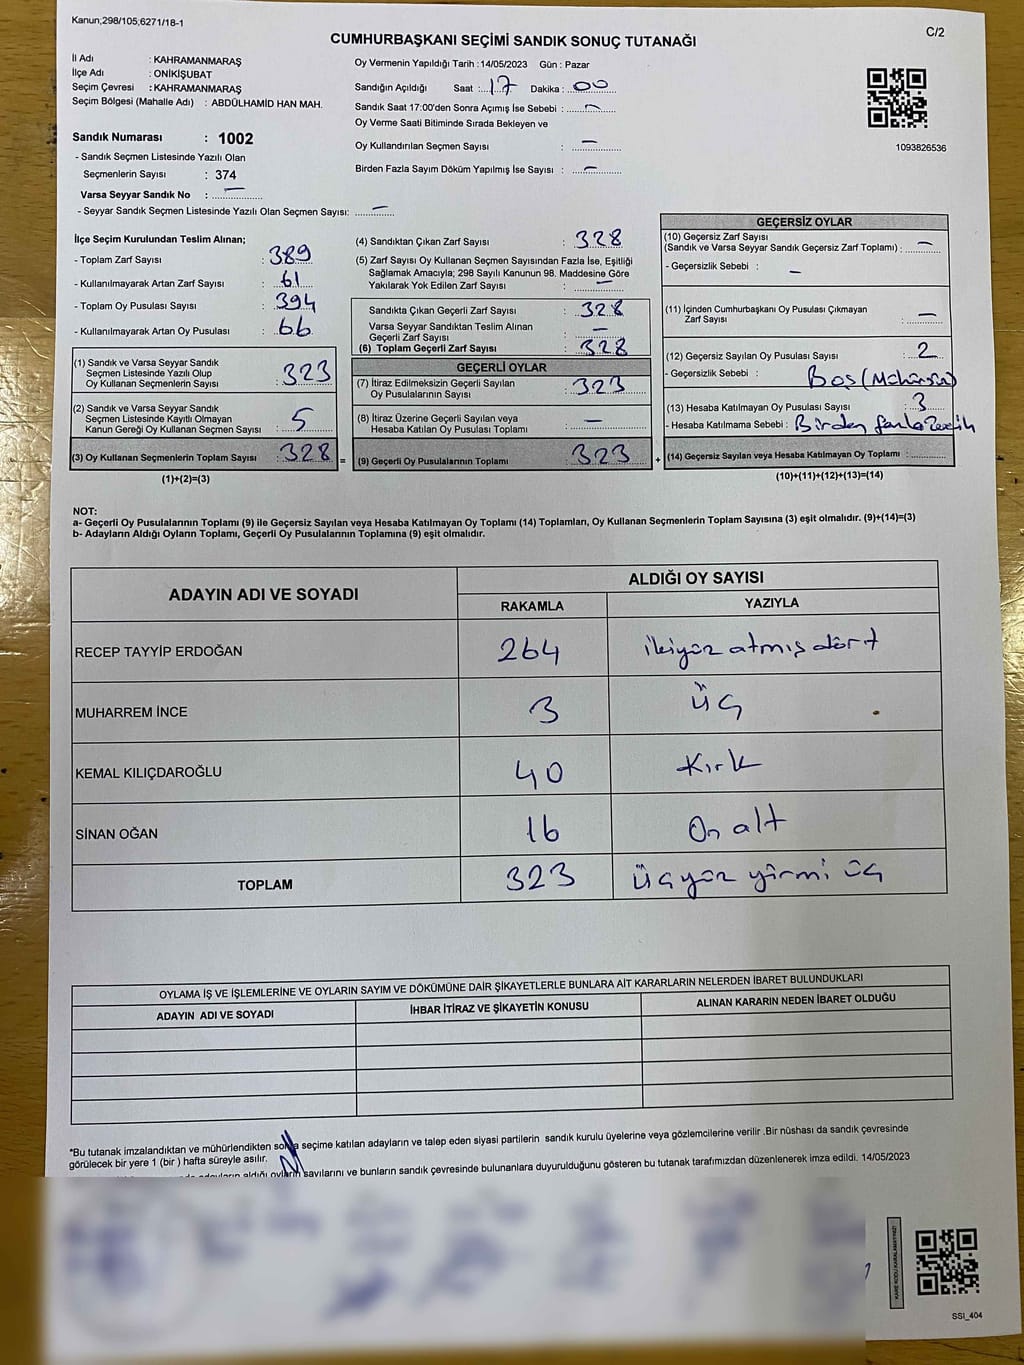 Kanun;298/105;6271/18-1
C/2
CUMHURBAŞKANI SEÇİMİ SANDIK SONUÇ TUTANAĞI
İl Adı : KAHRAMANMARAŞ
İlçe Adı : ONİKİŞUBAT
Seçim Çevresi : KAHRAMANMARAŞ
Seçim Bölgesi (Mahalle Adı) : ABDÜLHAMİD HAN MAH.
Sandık Numarası : 1002
- Sandık Seçmen Listesinde Yazılı Olan
Seçmenlerin Sayısı : 374
Varsa Seyyar Sandık No : —
- Seyyar Sandık Seçmen Listesinde Yazılı Olan Seçmen Sayısı: —
Oy Vermenin Yapıldığı Tarih : 14/05/2023 Gün : Pazar
Sandığın Açıldığı Saat : 17 Dakika : 00
Sandık Saat 17:00'den Sonra Açımış İse Sebebi : —
Oy Verme Saati Bitiminde Sırada Bekleyen ve
Oy Kullandırılan Seçmen Sayısı : —
Birden Fazla Sayım Döküm Yapılmış İse Sayısı : —
1093826536
İlçe Seçim Kurulundan Teslim Alınan;
- Toplam Zarf Sayısı : 389
- Kullanılmayarak Artan Zarf Sayısı : 61
- Toplam Oy Pusulası Sayısı : 394
- Kullanılmayarak Artan Oy Pusulası : 66
(1) Sandık ve Varsa Seyyar Sandık
Seçmen Listesinde Yazılı Olup
Oy Kullanan Seçmenlerin Sayısı : 323
(2) Sandık ve Varsa Seyyar Sandık
Seçmen Listesinde Kayıtlı Olmayan
Kanun Gereği Oy Kullanan Seçmen Sayısı : 5
(3) Oy Kullanan Seçmenlerin Toplam Sayısı : 328 =
(1)+(2)=(3)
(4) Sandıktan Çıkan Zarf Sayısı : 328
(5) Zarf Sayısı Oy Kullanan Seçmen Sayısından Fazla İse, Eşitliği
Sağlamak Amacıyla; 298 Sayılı Kanunun 98. Maddesine Göre
Yakılarak Yok Edilen Zarf Sayısı : —
Sandıkta Çıkan Geçerli Zarf Sayısı : 328
Varsa Seyyar Sandıktan Teslim Alınan
Geçerli Zarf Sayısı : —
(6) Toplam Geçerli Zarf Sayısı : 328
GEÇERLİ OYLAR
(7) İtiraz Edilmeksizin Geçerli Sayılan
Oy Pusulalarının Sayısı : 323
(8) İtiraz Üzerine Geçerli Sayılan veya
Hesaba Katılan Oy Pusulası Toplamı : —
(9) Geçerli Oy Pusulalarının Toplamı : 323 +
GEÇERSİZ OYLAR
(10) Geçersiz Zarf Sayısı
(Sandık ve Varsa Seyyar Sandık Geçersiz Zarf Toplamı) : —
- Geçersizlik Sebebi : —
(11) İçinden Cumhurbaşkanı Oy Pusulası Çıkmayan
Zarf Sayısı : —
(12) Geçersiz Sayılan Oy Pusulası Sayısı : 2
- Geçersizlik Sebebi : Boş (Mühürsüz)
(13) Hesaba Katılmayan Oy Pusulası Sayısı : 3
- Hesaba Katılmama Sebebi : Birden fazla
(14) Geçersiz Sayılan veya Hesaba Katılmayan Oy Toplamı :
(10)+(11)+(12)+(13)=(14)
NOT:
a- Geçerli Oy Pusulalarının Toplamı (9) ile Geçersiz Sayılan veya Hesaba Katılmayan Oy Toplamı (14) Toplamları, Oy Kullanan Seçmenlerin Toplam Sayısına (3) eşit olmalıdır. (9)+(14)=(3)
b- Adayların Aldığı Oyların Toplamı, Geçerli Oy Pusulalarının Toplamına (9) eşit olmalıdır.
ADAYIN ADI VE SOYADI ALDIĞI OY SAYISI
RAKAMLA YAZIYLA
RECEP TAYYİP ERDOĞAN 264 ikiyüz atmış dört
MUHARREM İNCE 3 üç
KEMAL KILIÇDAROĞLU 40 Kırk
SİNAN OĞAN 16 On alt
TOPLAM 323 üçyüz yirmi üç
OYLAMA İŞ VE İŞLEMLERİNE VE OYLARIN SAYIM VE DÖKÜMÜNE DAİR ŞİKAYETLERLE BUNLARA AİT KARARLARIN NELERDEN İBARET BULUNDUKLARI
ADAYIN ADI VE SOYADI İHBAR İTİRAZ VE ŞİKAYETİN KONUSU ALINAN KARARIN NEDEN İBARET OLDUĞU
*Bu tutanak imzalandıktan ve mühürlendikten sonra seçime katılan adayların ve talep eden siyasi partilerin sandık kurulu üyelerine veya gözlemcilerine verilir .Bir nüshası da sandık çevresinde
görülecek bir yere 1 (bir ) hafta süreyle asılır.
aldığı oyların sayılarını ve bunların sandık çevresinde bulunanlara duyurulduğunu gösteren bu tutanak tarafımızdan düzenlenerek imza edildi. 14/05/2023
SSI_404